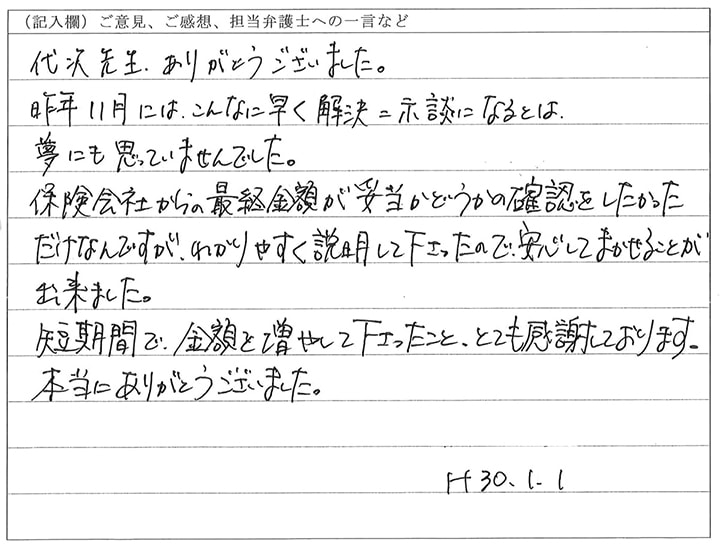 （記入欄）ご意見、ご感想、担当弁護士への一言など
代沢先生、ありがとうございました。
昨年11月には、こんなに早く解決＝示談になるとは、
夢にも思っていませんでした。
保険会社からの最終金額が妥当かどうかの確認をしたかった
だけなんですが、わかりやすく説明して下さったので、安心してまかせることが
出来ました。
短期間で、金額を増やして下さったこと、とても感謝しております。
本当にありがとうございました。
H30.1.1